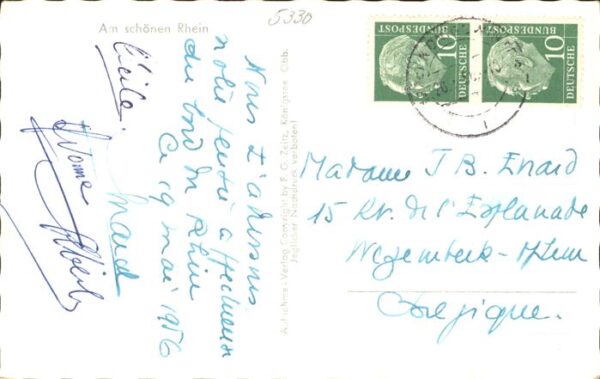 Am schönen Rhein
5330
Nous t'adressons
notre pensée affectueuse
du bord du Rhin
Ce 19 mai 1956
Cécile.
Yvonne
Maud
Aufnahme-Verlag Copyright by F. G. Zeitz, Königsee Obb.
Jeglicher Nachdruck verboten!
10
DEUTSCHE
BUNDESPOST
10
DEUTSCHE
BUNDESPOST
Madame J B. Enard
15 Av. de l'Esplanade
Wezembeek-Oppem
Belgique.